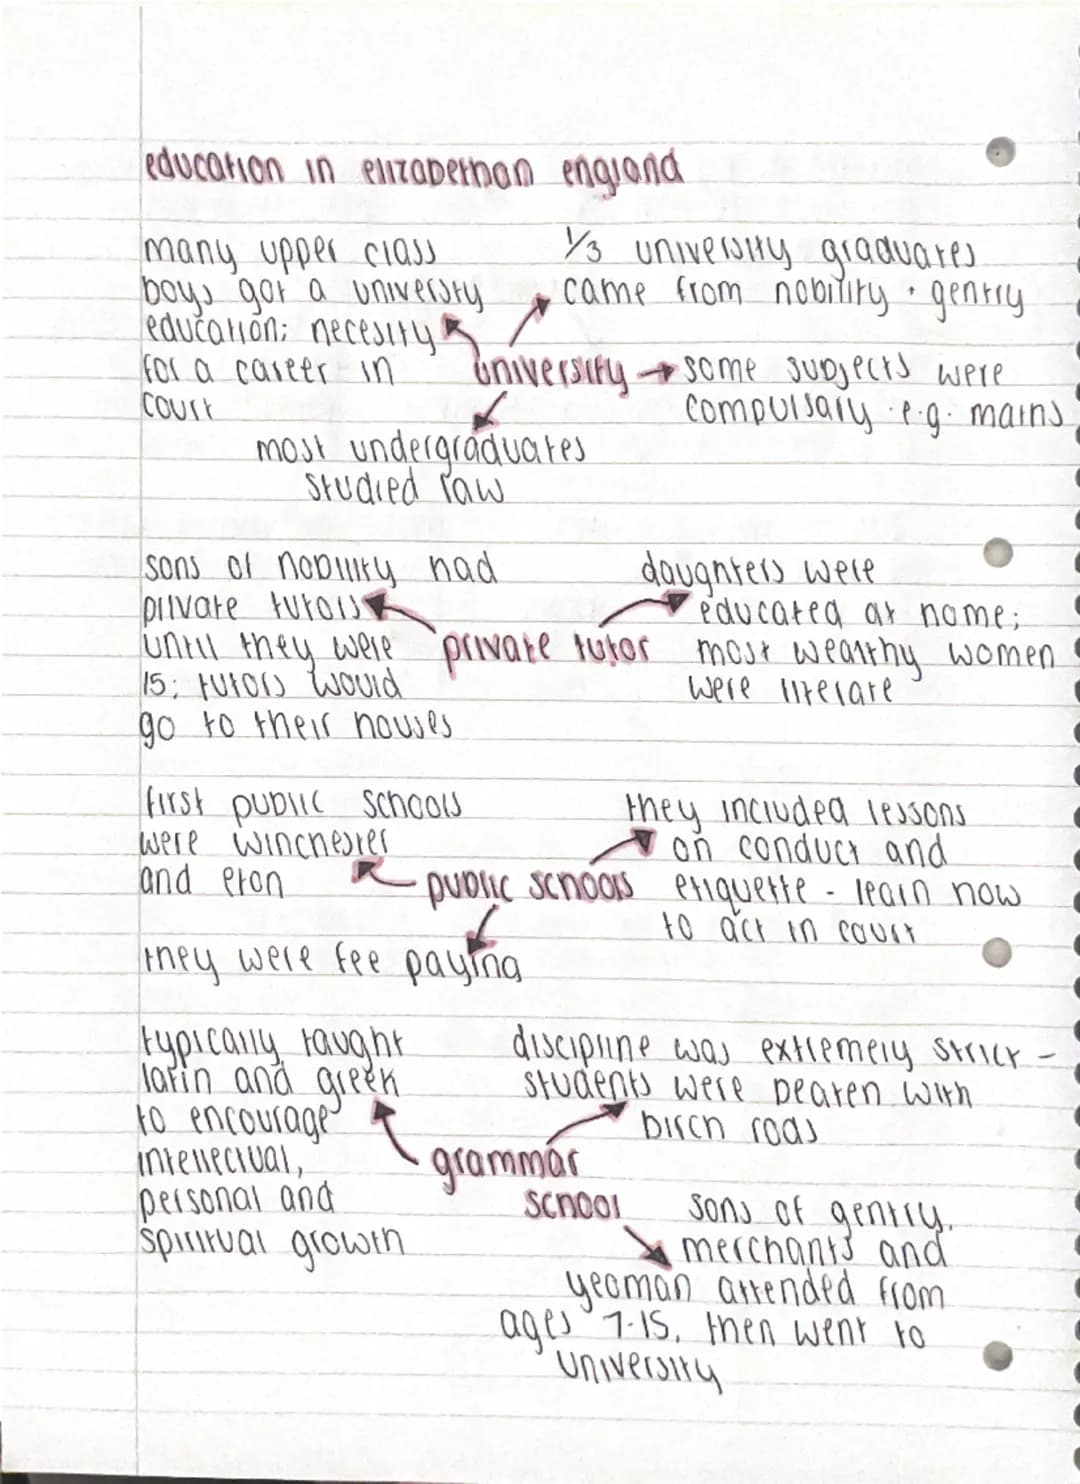 education in elizabethan england
many upper class
boys got a university
education; necesity
for a career in
court
1/3 university graduates
came from nobility + gentry
university
some subjects were
compulsary e.g. maths
most undergraduates
studied law
sons of nobility had
private tutors
until they were
15; tutors would
go to their houses
private tutor
daughters were
educated at home;
most wealthy women
were literate
first public schools
were winchester
and eton
public schools
they included lessons
on conduct and
etiquette - learn how
to act in court
they were fee paying
typically taught
latin and greek
to encourage
intellectual,
personal and
spiritual growth
discipline was extremely strict -
students were beaten with
birch rods
grammar
school
sons of gentry,
merchants and
yeoman attended from
ages 7-15, then went to
university